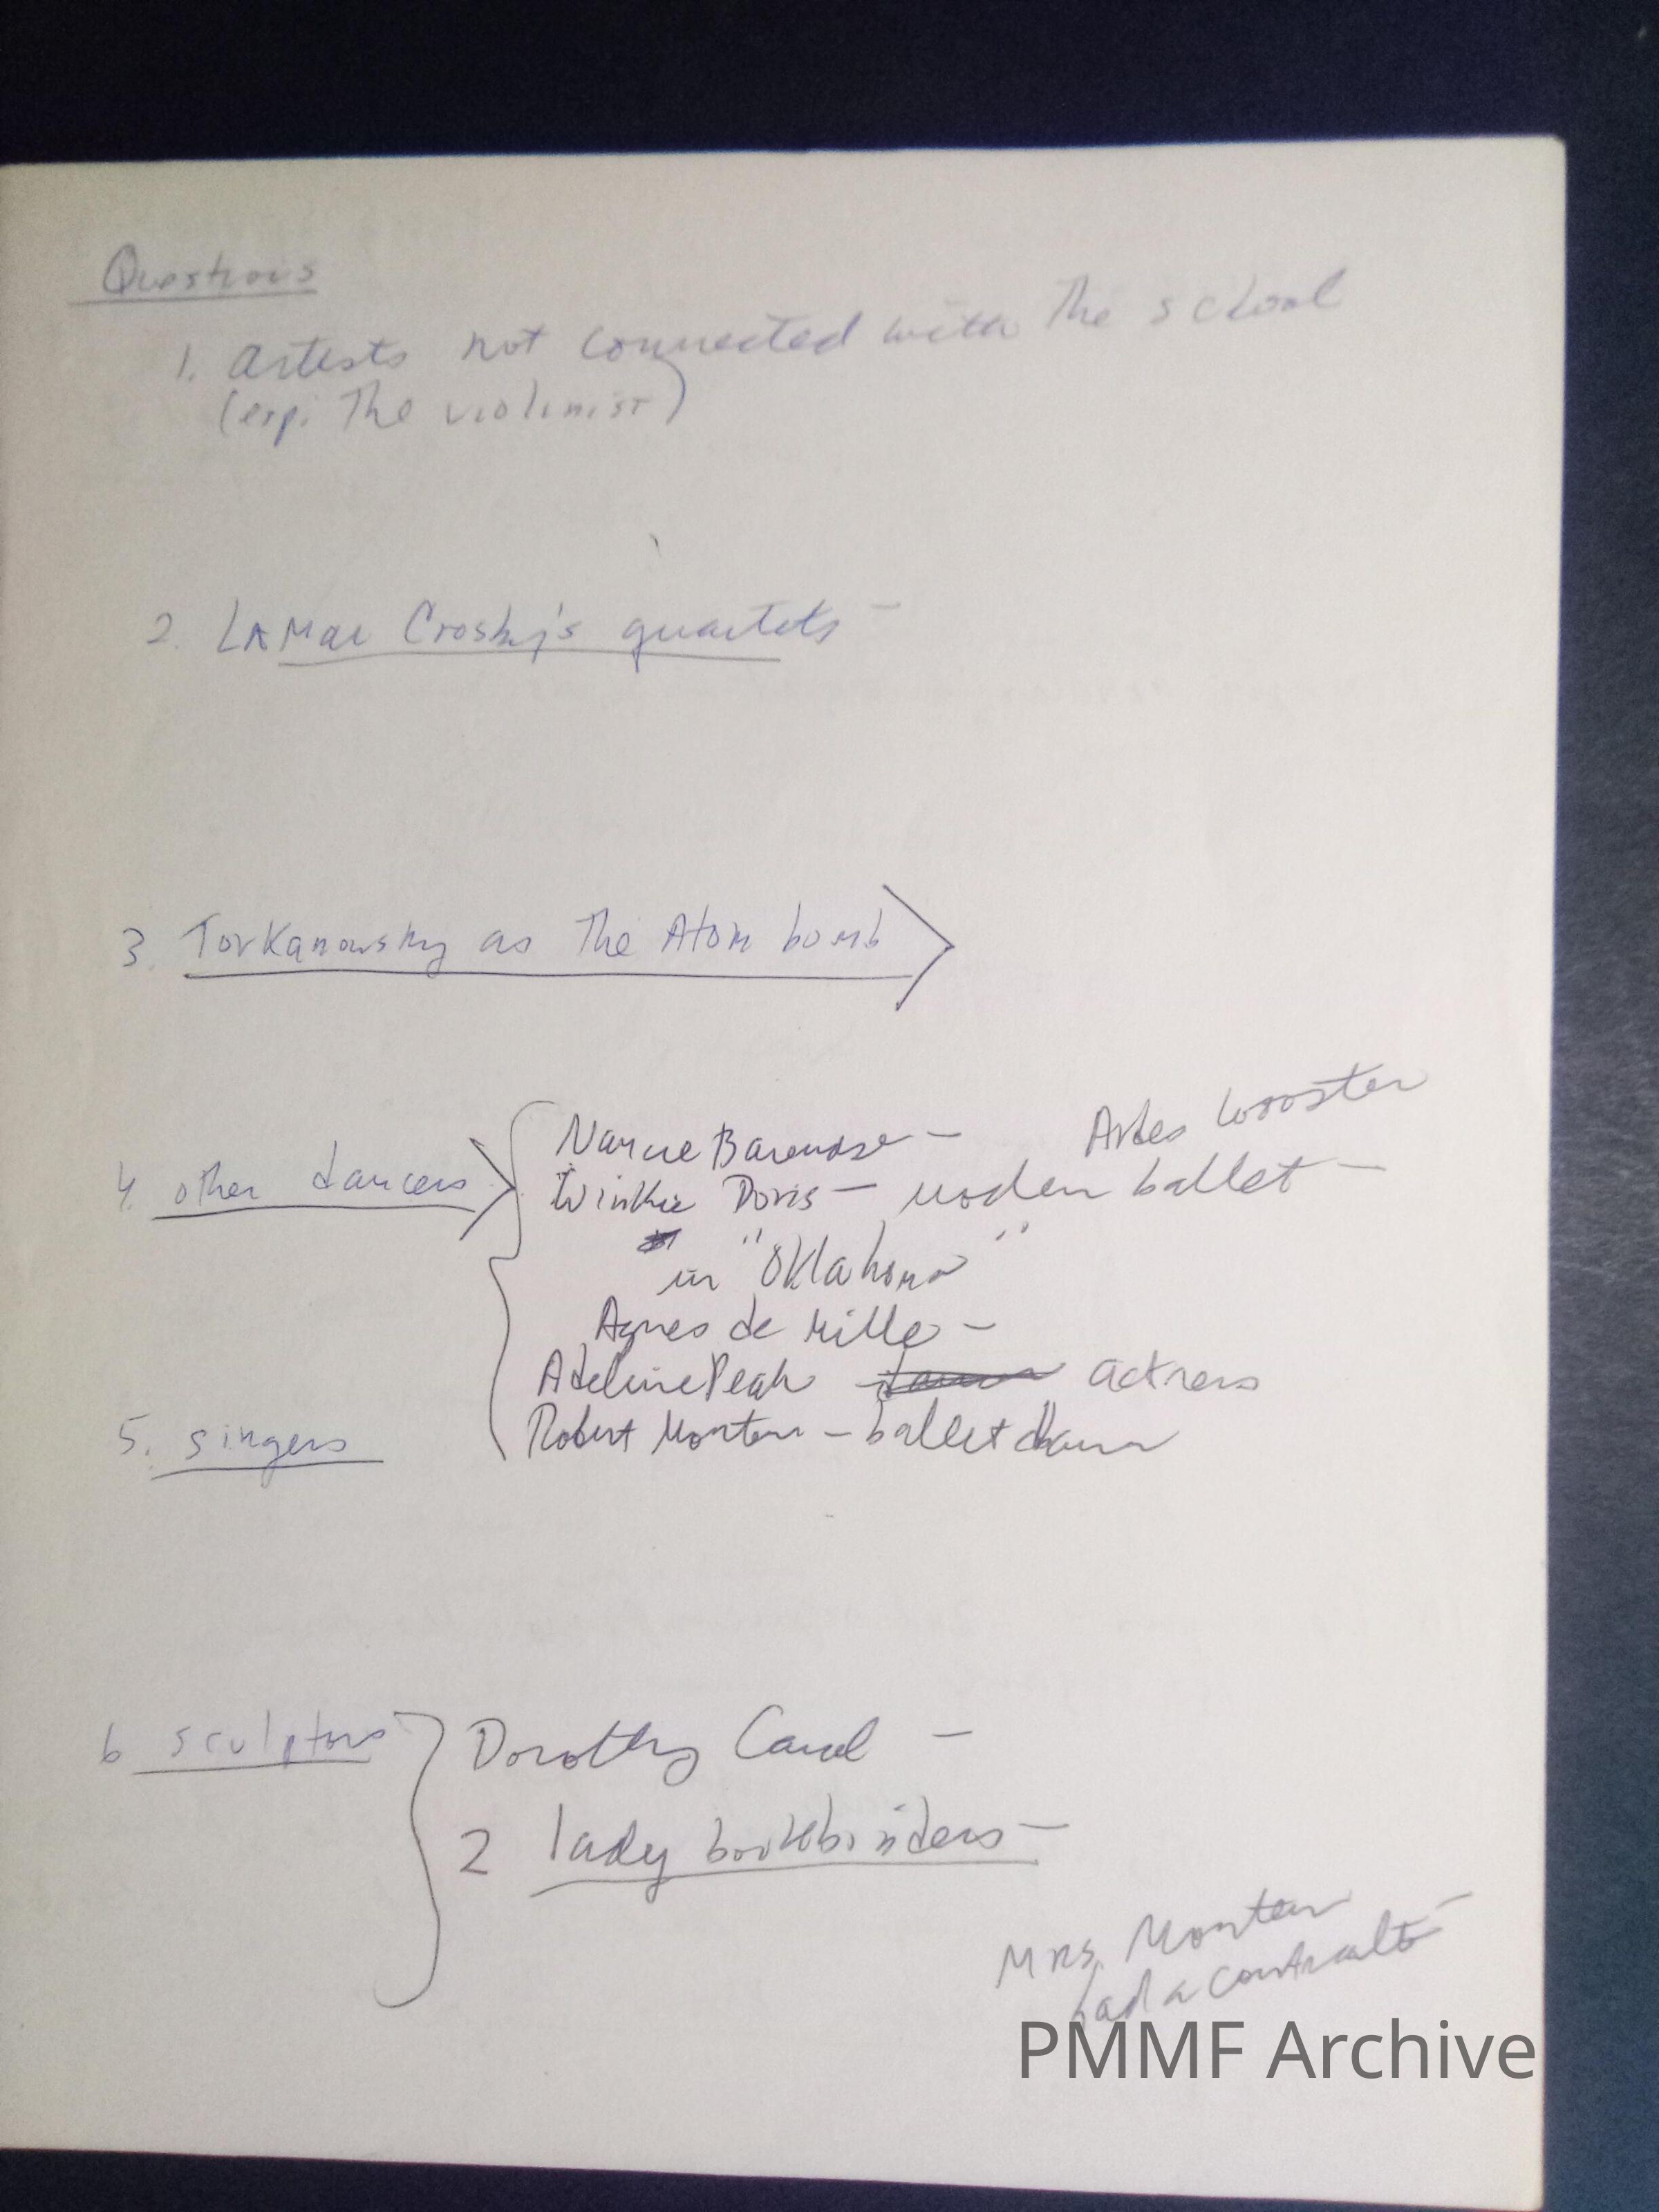 Questions
1. Artists not connected with The school
(esp. The violinist)
2. LAMar Crosby's quartets –
3. Torkanowsky as The Atom bomb
Wooster
4. other dancers
Barendse –
Winkie Doris – modern ballet –
in "Oklahoma"
Agnes de Mille –
Adeline actress
Robert – ballet
5. singers
6 sculptors
Dorothy –
2 lady bookbinders –
Mrs.
had a contralto –
PMMF Archive